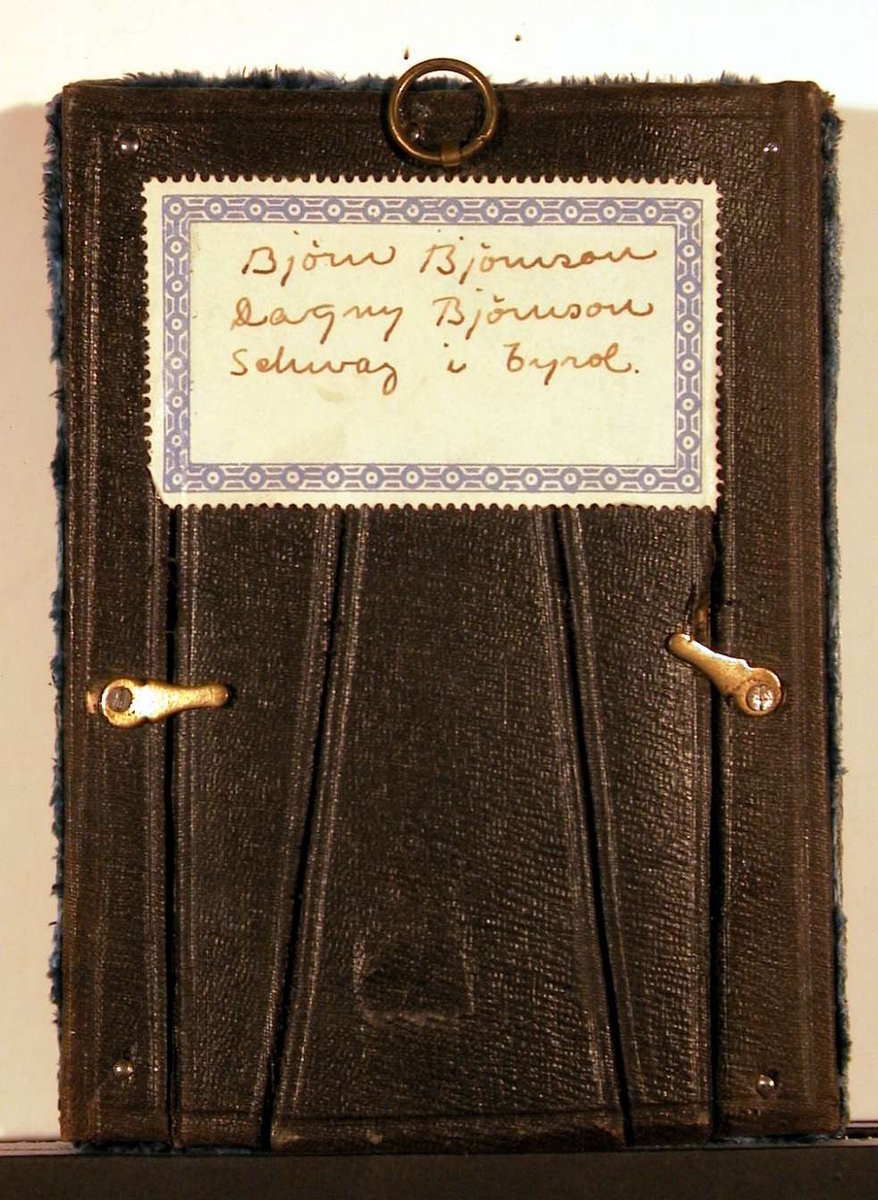 Björn Björnson
Dagny Björnson
Schwaz i Tyrol.